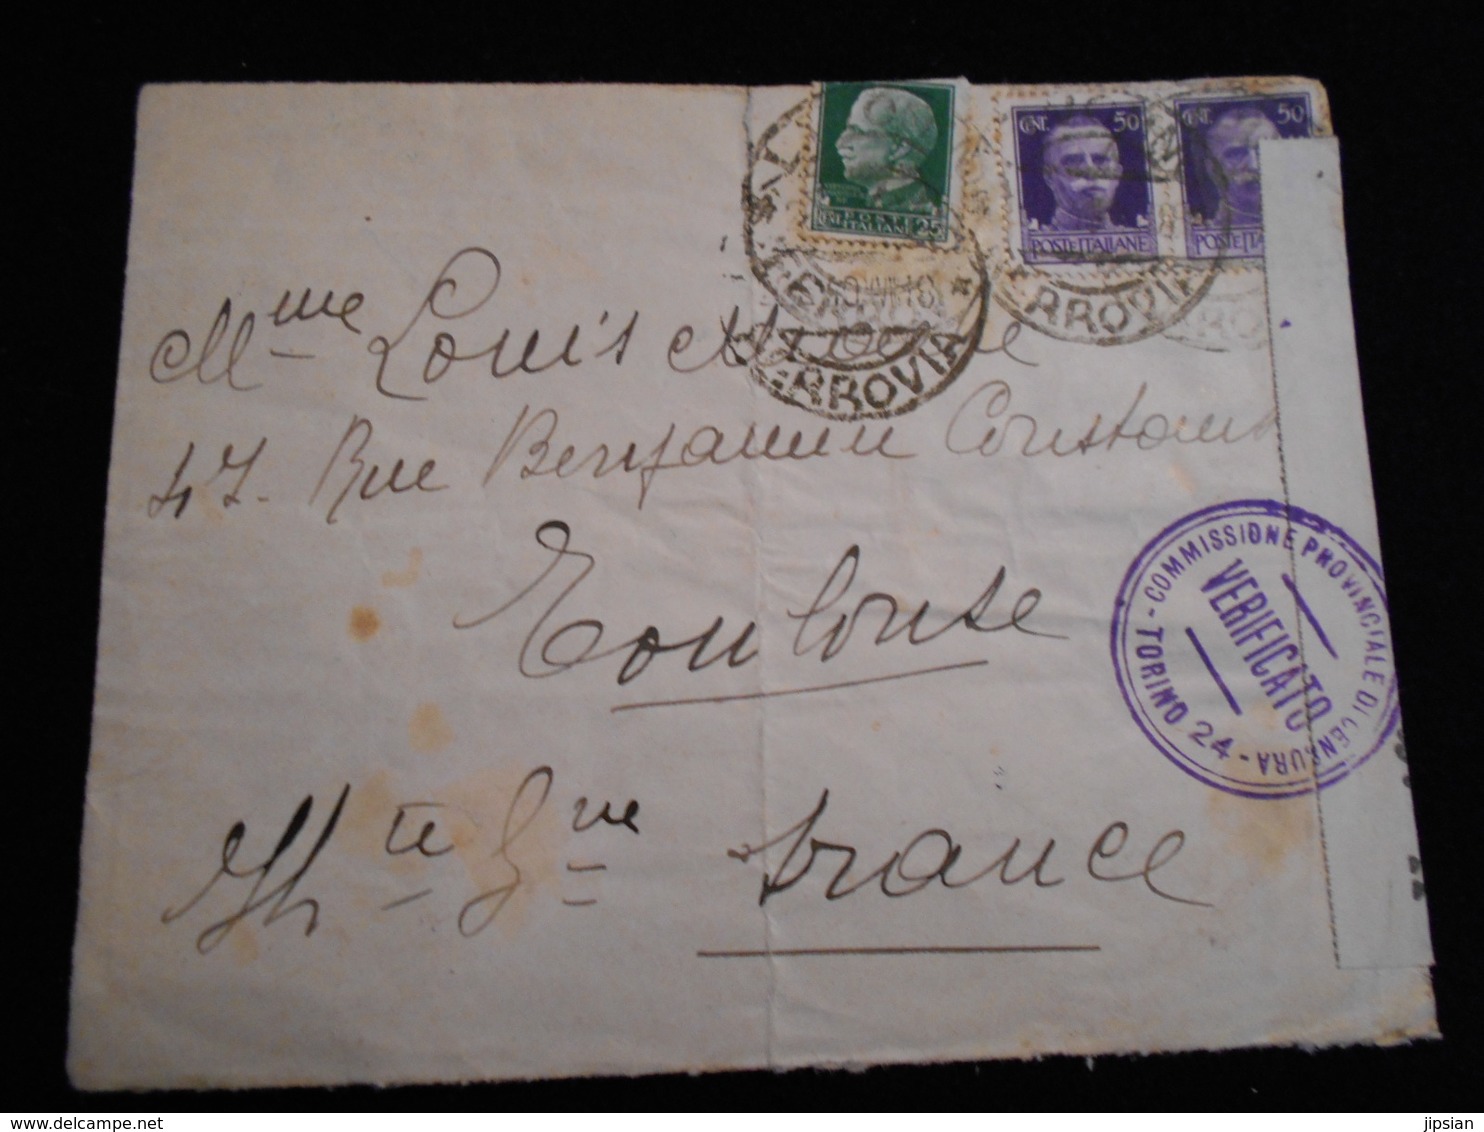 POSTE
ITALIANE
CENT. 25
CENT. 50
POSTE ITALIANE
CENT. 50
POSTE ITA
FERROVIA
FERROVIA
Mme Louis
47. Rue Benjamin Constant
Toulouse
Hte Gne France
COMMISSIONE PROVINCIALE DI CENSURA
VERIFICATO
- TORINO 24 -
delcampe.net
jipsian